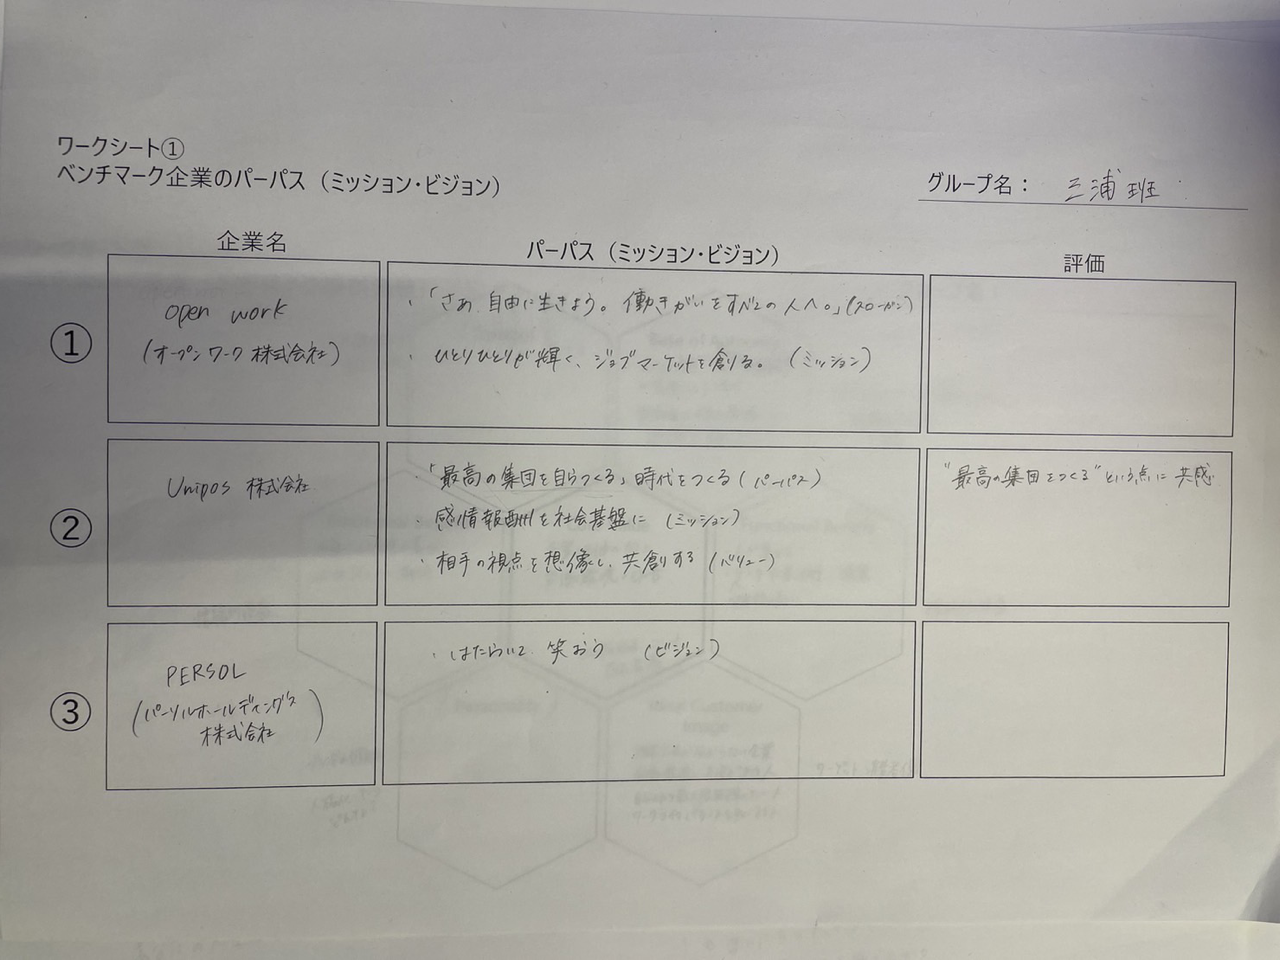 ワークシート①
ベンチマーク企業のパーパス（ミッション・ビジョン）
グループ名： 三浦班
企業名
パーパス（ミッション・ビジョン）
評価
①
open work
（オープンワーク株式会社）
・「さあ、自由に生きよう。働きがいをすべての人へ。」（スローガン）
・ひとりひとりが輝く、ジョブマーケットを創る。（ミッション）
②
Unipos 株式会社
・「最高の集団を自らつくる」時代をつくる（パーパス）
・感情報酬を社会基盤に（ミッション）
・相手の視点を想像し、共創する（バリュー）
"最高の集団をつくる"という点に共感
③
PERSOL
（パーソルホールディングス
株式会社）
・はたらいて、笑おう（ビジョン）